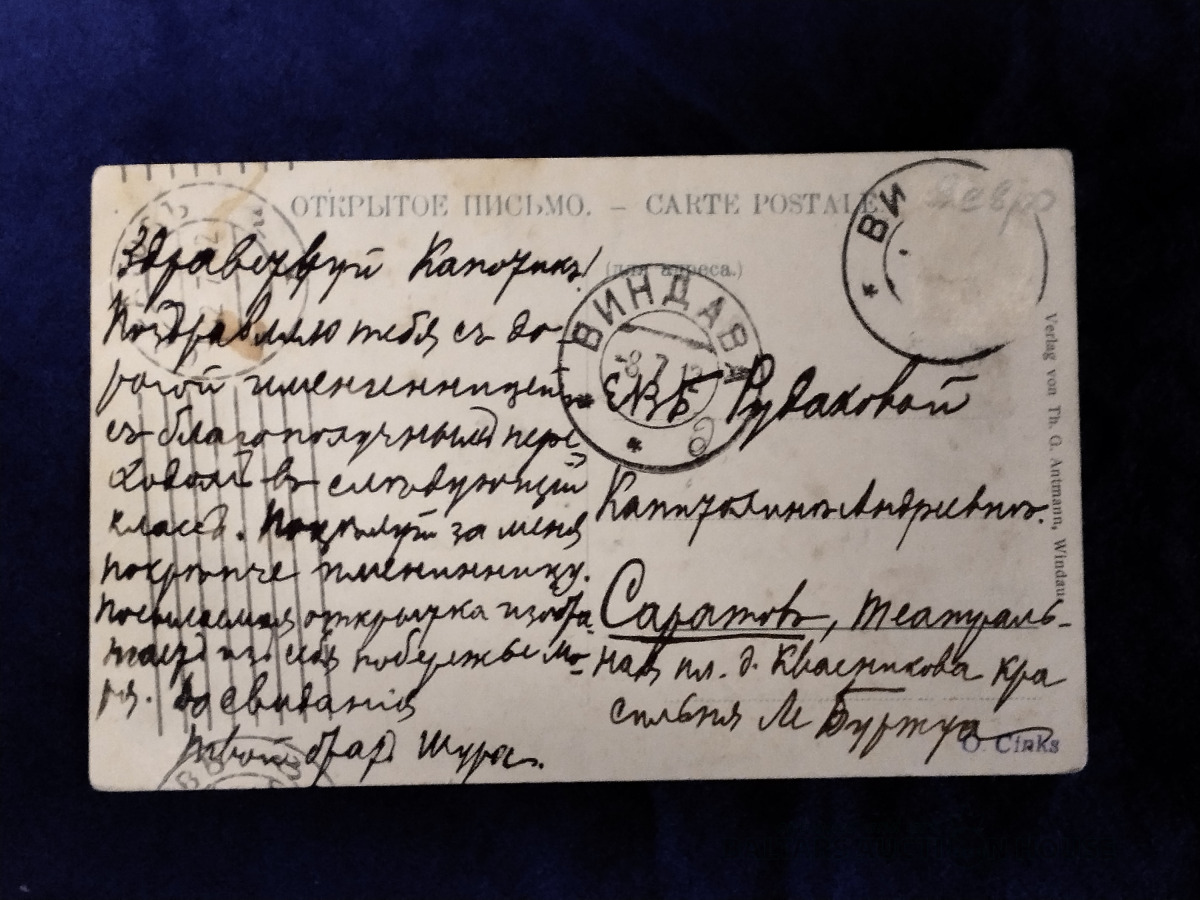 ОТКРЫТОЕ ПИСЬМО. – CARTE POSTALE
(для адреса.)
Здравствуй Капочикъ!
Поздравляю тебя съ до-
рогой именинницей
съ благополучнымъ пере
ходомъ въ слѣдующій
классъ. Поцѣлуй за меня
покрѣпче именинницу.
Посылаемая открытка изобра-
жаетъ изъ себя побережье мо-
ря. До свиданія
твой братъ Шура.
ВИНДАВА
-8.7.1
ВИ
ЕВБ Рудаковой
Капитолинѣ Андреевнѣ.
Саратовъ, Театраль-
ная пл. д. Квасникова кра
сильня М Буржуа
O. Cinks
Verlag von Th. G. Antmann, Windau